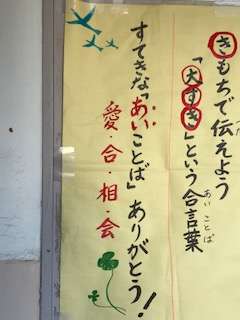 きもちで伝えよう
「大すき」という合言葉
あい ことば
すてきな「あいことば」ありがとう！
愛・合・相・会